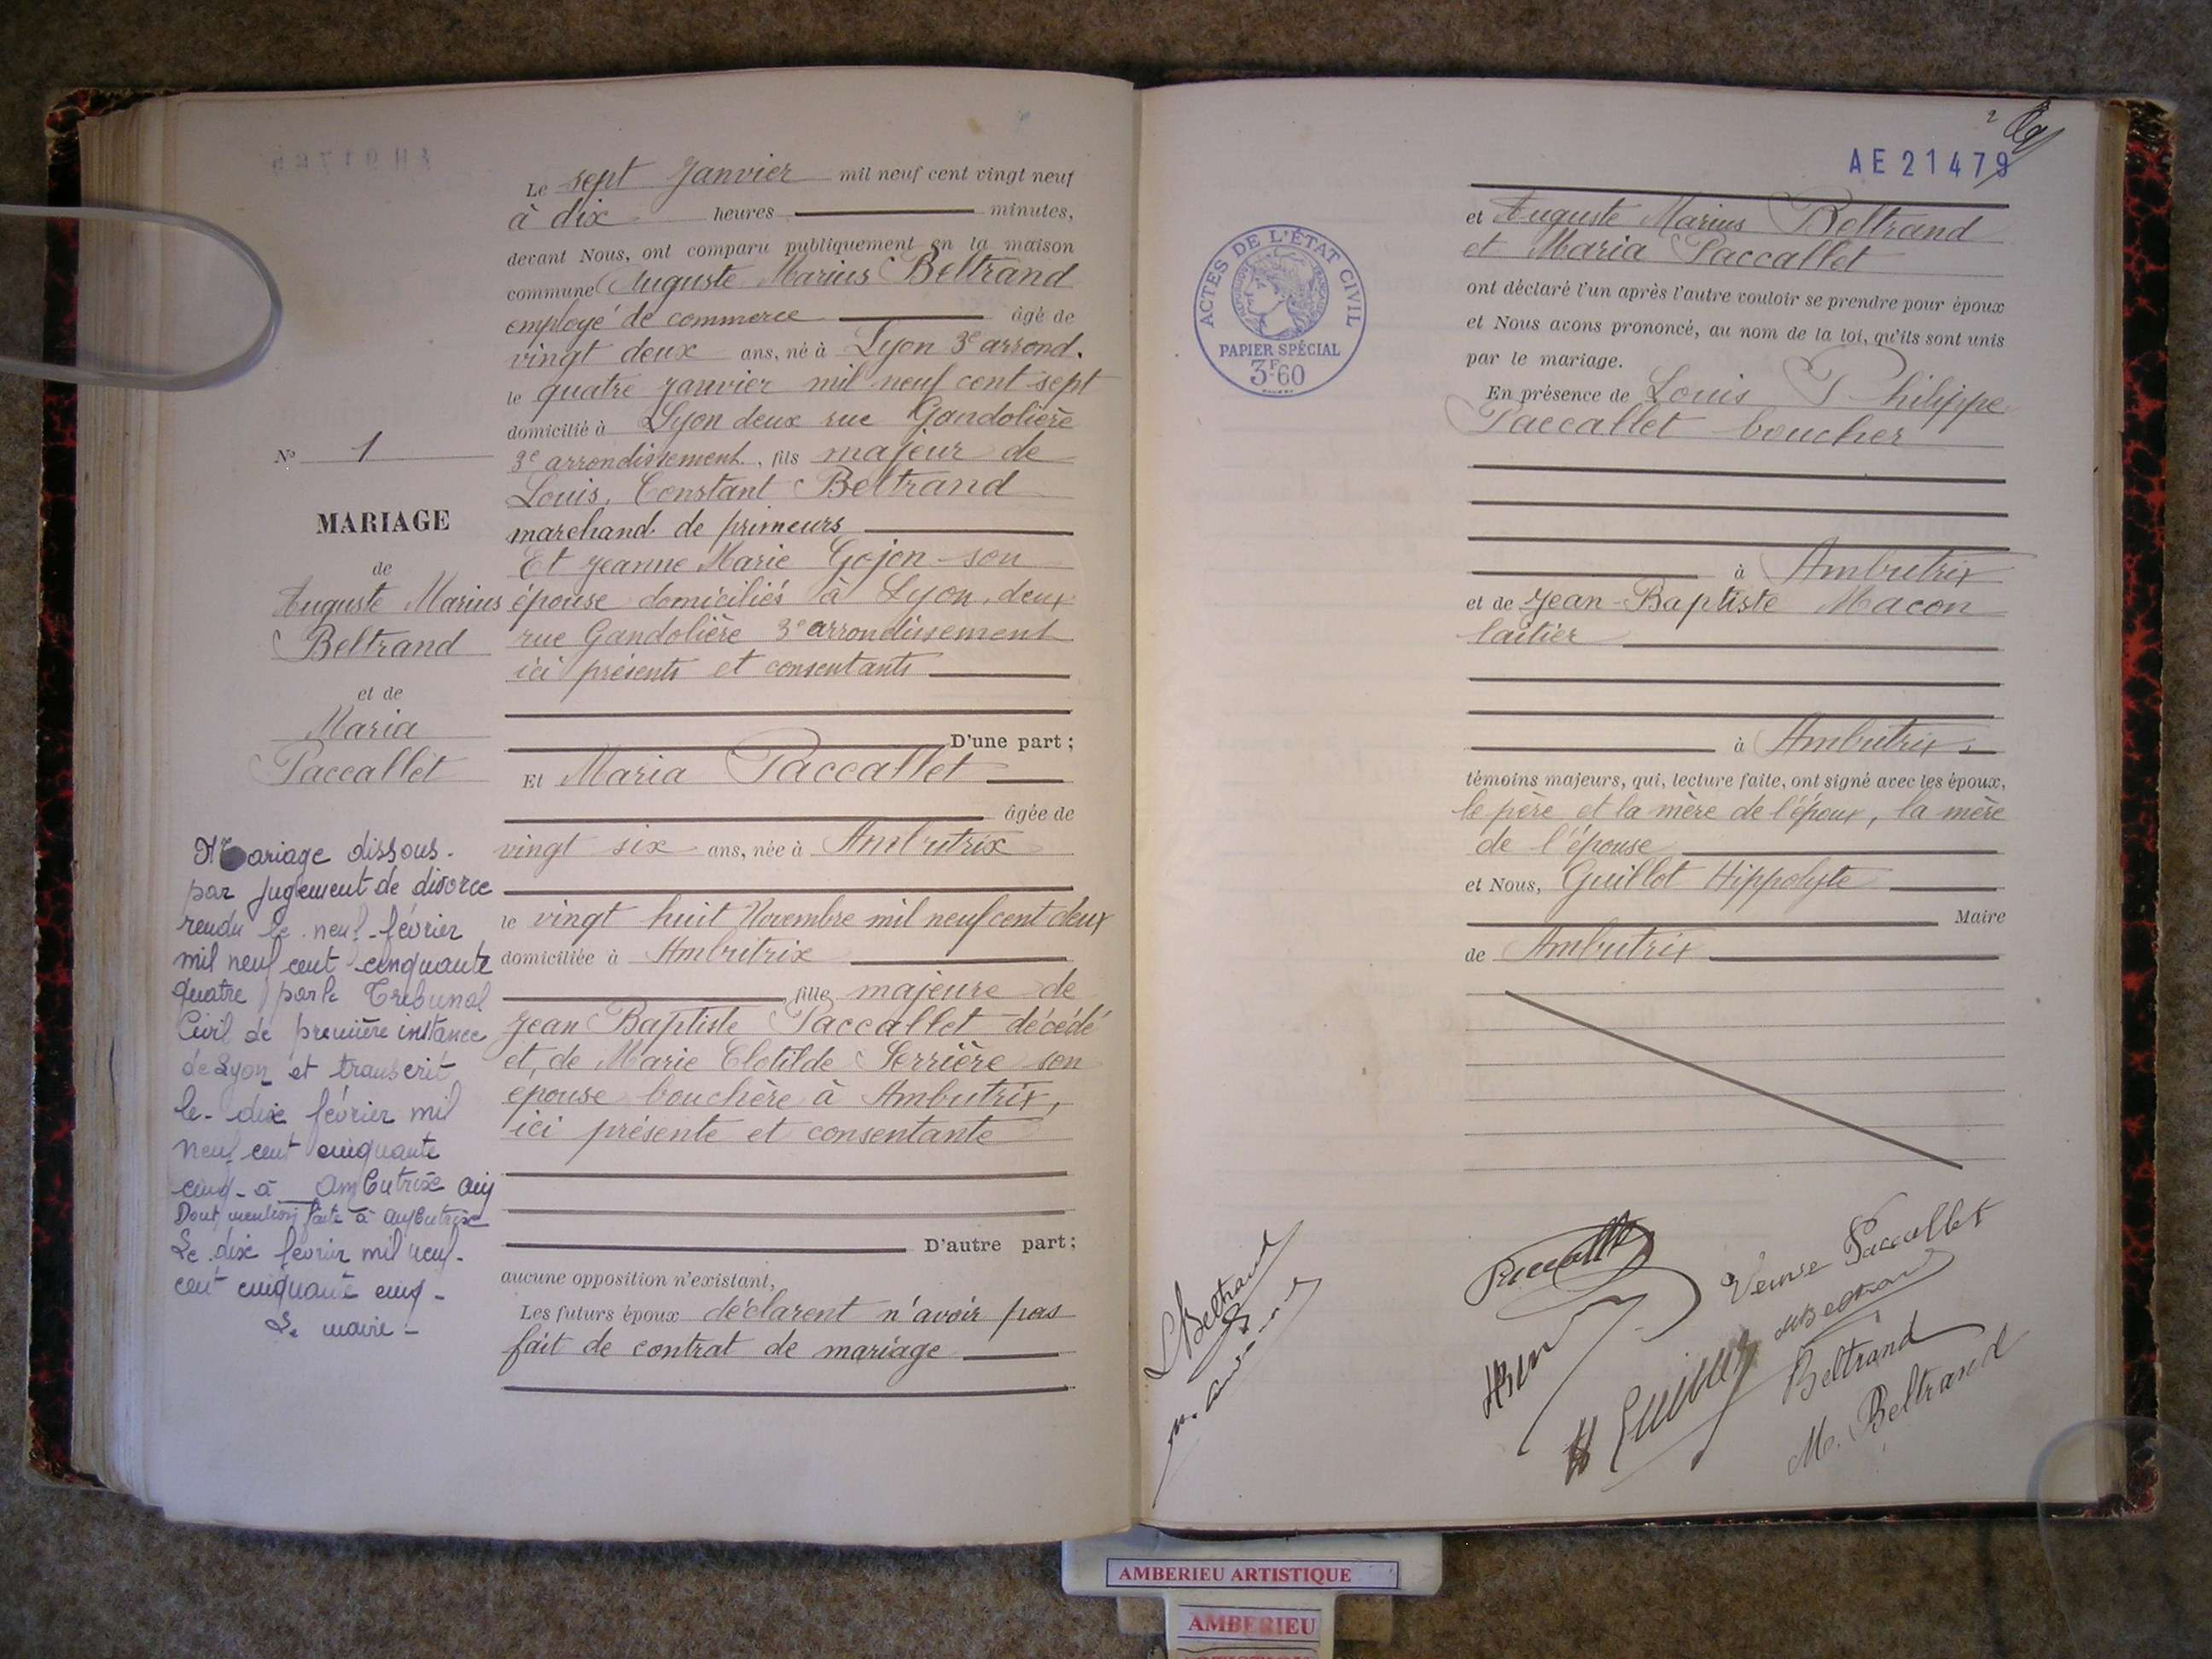 Le sept Janvier mil neuf cent vingt neuf
à dix heures minutes,
devant Nous, ont comparu publiquement en la maison
commune Auguste Marius Beltrand
employé de commerce âgé de
vingt deux ans, né à Lyon 3e arrond.
le quatre janvier mil neuf cent sept
domicilié à Lyon deux rue Gandolière
3e arrondissement, fils majeur de
Louis, Constant Beltrand
marchand de primeurs
Et Jeanne Marie Gojon son
épouse domiciliés à Lyon, deux
rue Gandolière 3e arrondissement
ici présents et consentants
D'une part;
Et Maria Paccallet
âgée de
vingt six ans, née à Ambutrix
le vingt huit Novembre mil neuf cent deux
domiciliée à Ambutrix
fille majeure de
Jean Baptiste Paccallet décédé
et, de Marie Clotilde Serrière son
épouse bouchère à Ambutrix,
ici présente et consentante
D'autre part;
aucune opposition n'existant,
Les futurs époux déclarent n'avoir pas
fait de contrat de mariage
No 1
MARIAGE
de
Auguste Marius
Beltrand
et de
Maria
Paccallet
Mariage dissous.
par jugement de divorce
rendu le neuf février
mil neuf cent cinquante
quatre par le Tribunal
Civil de première instance
de Lyon et transcrit
le dix février mil
neuf cent cinquante
cinq - à Ambutrix Ain
Dont mention faite à Ambutrix
Le dix février mil neuf-
cent cinquante cinq -
Le maire -
2
AE 21479
ACTES DE L'ÉTAT CIVIL
RÉPUBLIQUE FRANÇAISE
PAPIER SPÉCIAL
3F.60
et Auguste Marius Beltrand
et Maria Paccallet
ont déclaré l'un après l'autre vouloir se prendre pour époux
et Nous avons prononcé, au nom de la loi, qu'ils sont unis
par le mariage.
En présence de Louis Philippe
Paccallet boucher
à Ambutrix
et de Jean-Baptiste Macon
laitier
à Ambutrix.
témoins majeurs, qui, lecture faite, ont signé avec les époux,
le père et la mère de l'époux, la mère
de l'épouse
et Nous, Guillot Hippolyte
Maire
de Ambutrix
Paccallet
Veuve Paccallet
L Beltrand
H Guillot
Beltrand
M. Beltrand
AMBERIEU ARTISTIQUE
AMBERIEU